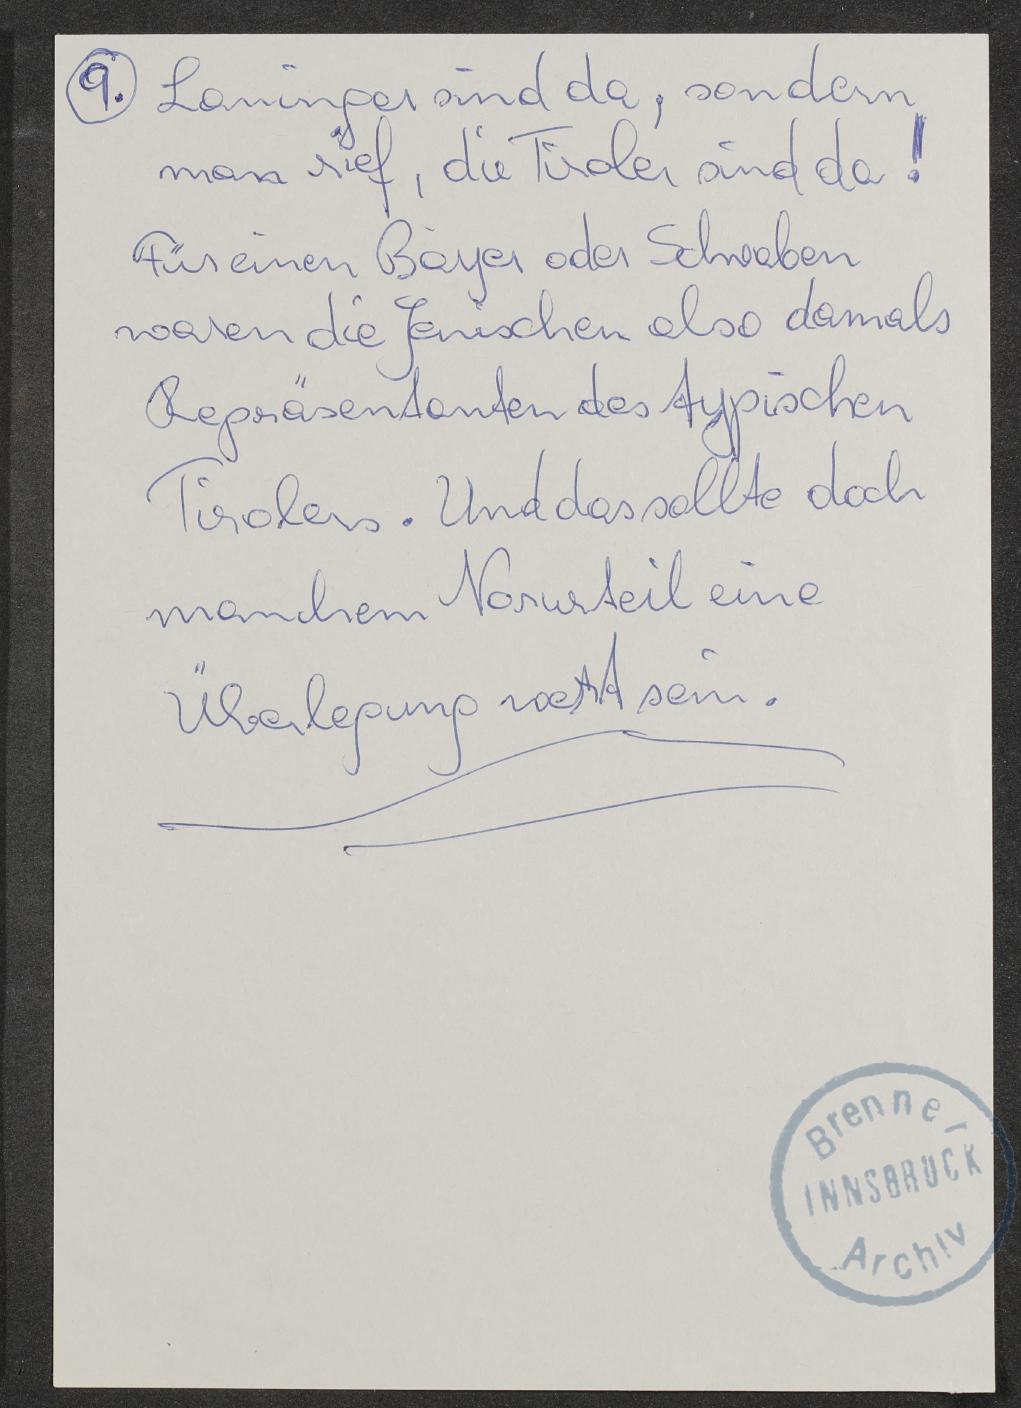 9. Laninger sind da, sondern
man rief, die Tiroler sind da!
Für einen Bayer oder Schwaben
waren die Jenischen also damals
Repräsentanten des typischen
Tirolers. Und das sollte doch
manchem Vorurteil eine
Überlegung wert sein.
Brenner
INNSBRUCK
Archiv